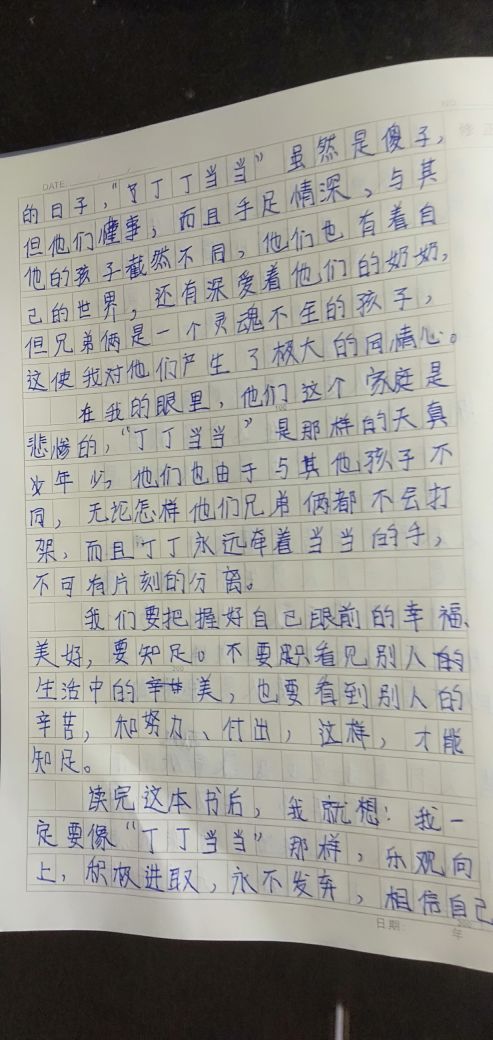 NO.
DATE
的日子，“丁丁当当”虽然是傻子，
但他们懂事，而且手足情深，与其
他的孩子截然不同，他们也有着自
己的世界，还有深爱着他们的奶奶，
但兄弟俩是一个灵魂不全的孩子，
这使我对他们产生了极大的同情心。
在我的眼里，他们这个家庭是
悲惨的，“丁丁当当”是那样的天真
年少，他们也由于与其他孩子不
同，无论怎样他们兄弟俩都不会打
架，而且丁丁永远牵着当当的手，
不可有片刻的分离。
我们要把握好自己眼前的幸福、
美好，要知足。不要只看见别人的
生活中的美，也要看到别人的
辛苦，和努力、付出，这样，才能
知足。
读完这本书后，我就想：我一
定要像“丁丁当当”那样，乐观向
上，积极进取，永不发弃，相信自己
日期：
年